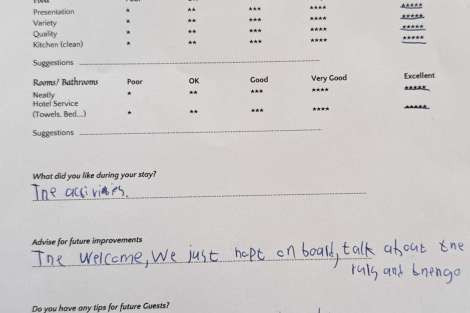 Presentation * ** *** **** *****
Variety * ** *** **** *****
Quality * ** *** **** *****
Kitchen (clean) * ** *** **** *****
Suggestions
Rooms/ Bathrooms Poor OK Good Very Good Excellent
Neatly * ** *** **** *****
Hotel Service
(Towels, Bed....) * ** *** **** *****
Suggestions
What did you like during your stay?
The activities.
Advise for future improvements
The Welcome, We just hopt on board, talk about the
ruls and
Do you have any tips for future Guests?